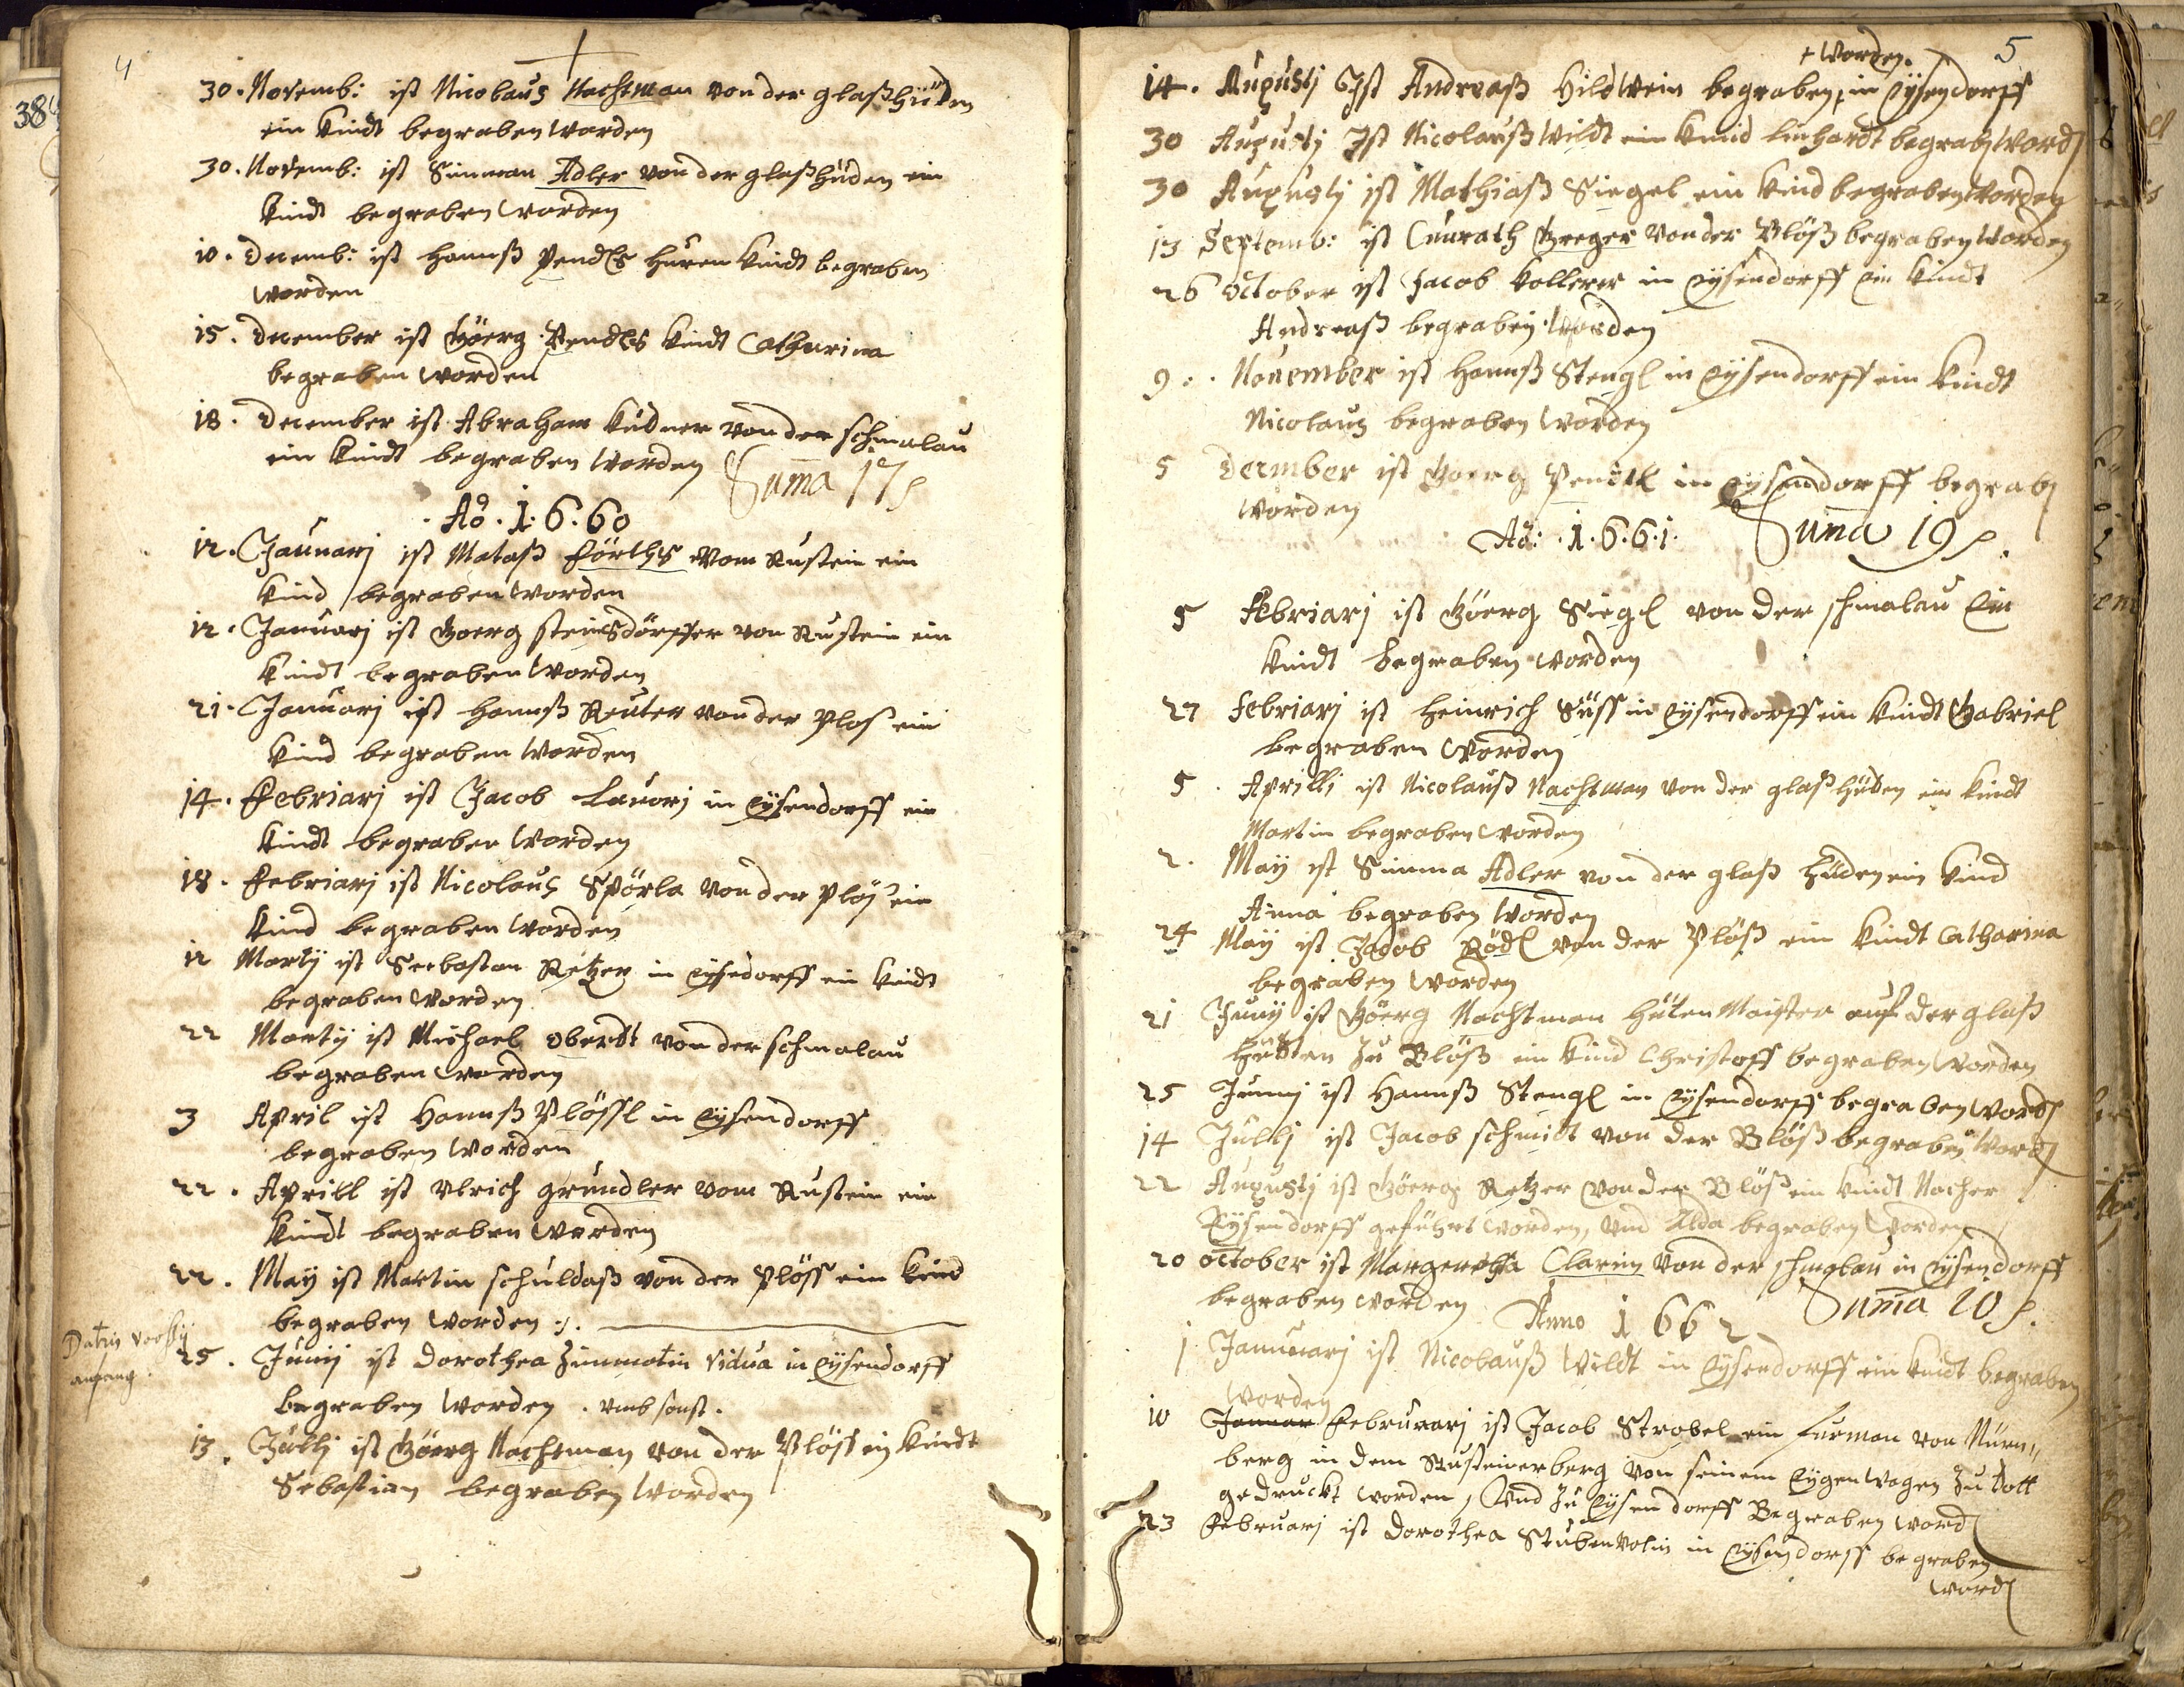 4
†
30. Novemb: ist Nicolaus Nachtman von der glaßhüdn
ein kindt begraben worden
30. Novemb: ist Simman Adler von der glaßhüden ein
kindt begraben worden
10. Decemb: ist Hannß Pendls huren kindt begraben
worden
15. December ist Göerg Pendls kindt Catharina
begraben worden
18. December ist AbrahamKüdner von der schmalau
ein kindt begraben worden
Suma 17 p
Aō. 1.6.60
12. Jaunarj ist Mataß förthß vom Rustein ein
kind begraben worden
12. Januarj ist Goerg steinsdörffer von Rustein ein
kindt begraben worden
21. Januarj ist Hannß Reuter von der Ploß ein
kind begraben worden
14. Febriarj ist Jacob Lauorj in Eysendorff ein
kindt begraben worden
18. Febriarj ist Nicolaus Spörla von der Plöß ein
kind begraben worden
12 Marty ist Seebastan Retzer in Eysedorff ein keidt
begraben worden
22 Marty ist Michael oberdt von der schmalau
begraben worden
3 April ist Hannß Plössl in Eysendorff
begraben worden
22. Aprill ist Vlrich gründler vom Rustein ein
kindt begraben worden
22. May ist Martin schuldaß von der Plöss ein kind
begraben worden
anfang
25. Junij ist Dorothea Zimmatin vidua in Eysendorff
begraben worden . vmb sonst.
13. Jullj ist Göerg Nachtman von der Plöss ein kindt
Sebastian begraben worden
5
+ worden.
14. Augustj Ist Andreaß Hildwein begraben + in Eysendorff
30 Augustj Ist Nicolauß Wildt ein kindt linhardt begrabn word
30 Augustj ist Mathiaß Siegel ein kind begraben worden
13 Septemb: ist Cunrath Greger von der Plöß begraben worden
26 October ist Jacob Kollerer in Eysendorff ein kindt
Andreaß begraben worden
9. November ist Hannß Stengl in Eysendorff ein kindt
Nicolaus begraben worden
5 December ist Goerg Pendtl in Eysendorff begrab
worden
Suma 19 p.
Aō: 1.6.6.1.
5 Febriarj ist Göerg Siegl von der schmalau Ein
kindt begraben worden
27 Febriarj ist Heinrich Süss in Eysendorff ein kindt Gabriel
begraben worden
5. Aprillj ist Nicolauß Nachtman von der glaßhüden ein kindt
Martin begraben worden
2. May ist Simma Adler von der glaß hüden ein kind
Anna begraben worden
24 May ist Jacob Rödl von der Plöß ein kindt Catharina
begraben worden
21 Juny ist Göerg Nachtman hüten Maister auf der glaß
hütten zu Blöß ein kind Christoff begraben worden
25 Junij ist Hannß Stengl in Eysendorff begraben word
14 Jullj ist Jacob schmidt von der Blöß begraben word
22 Augustj ist Göerg Retzer von der Blöß ein kindt Nacher
Eysendorff geführt worden, vnd Alda begraben worden
20 october ist Margeretha Clarin von der schmalau in Eysendorff
begraben worden
Suma 10 p.
Anno 1662
1 Januuarj ist Nicolauß Wildt in Eysendorff ein kindt begraben
worden
10 Januar Februuarj ist Jacob Strobel ein Furman von Nürn„
berg in dem Rusteinerberg von seinem Eygen wagen zu tott
gedruckt worden, Vnd zu Eysendorff Begraben word
23 Februarj ist Dorothea Stubenvolin in Eysendorff begraben
word